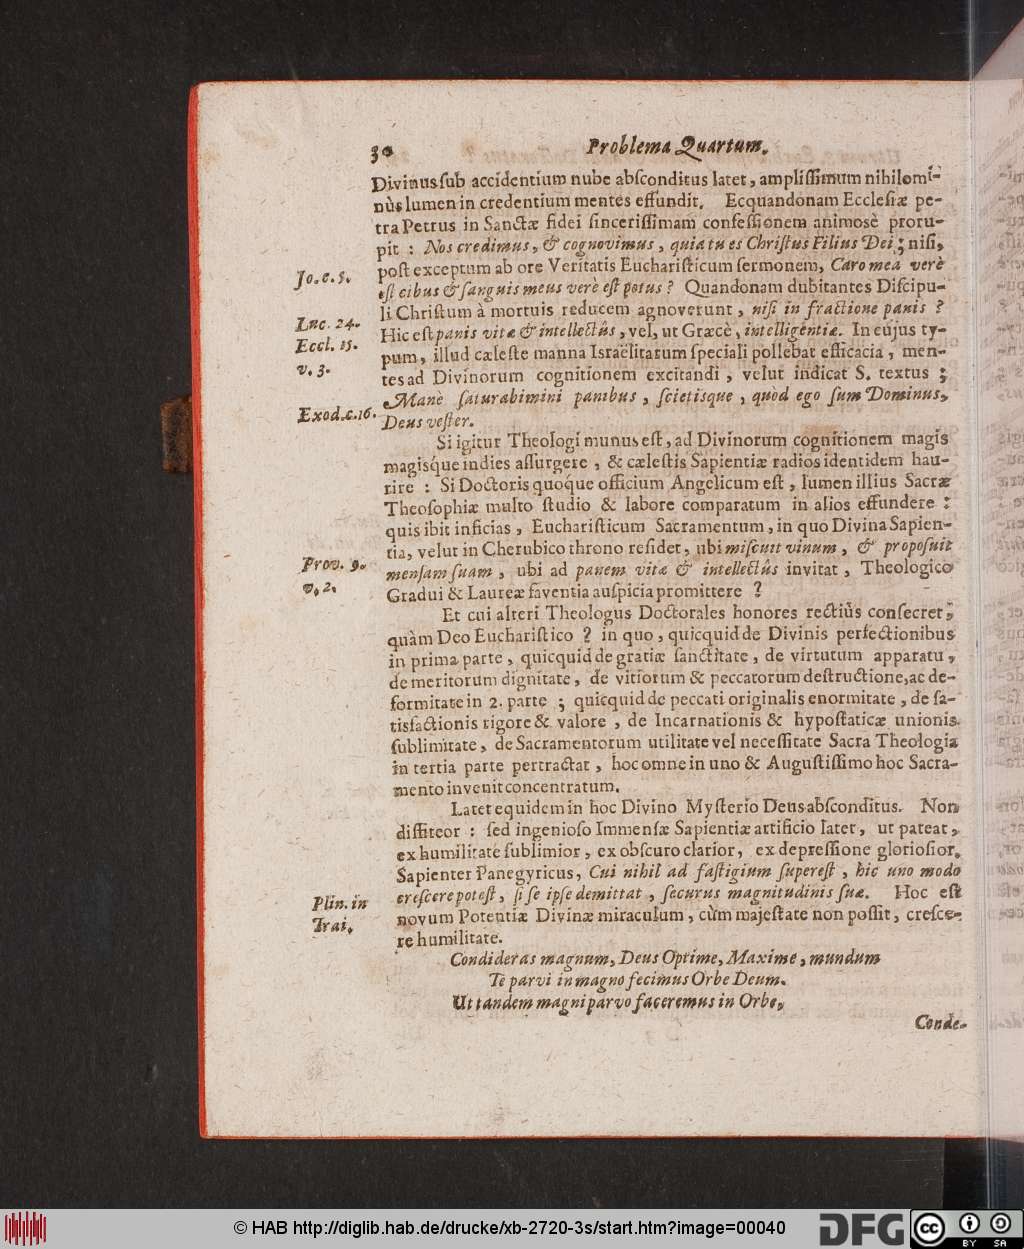 30 Problema Quartum.
Divinus ſub accidentium nube abſconditus latet, ampliſſimum nihilomi-
nùs lumen in credentium mentes effundit. Ecquandonam Eccleſiæ pe-
tra Petrus in Sanctæ fidei ſinceriſſimam confeſſionem animosè proru-
pit : Nos credimus, & cognovimus, quia tu es Chriſtus Filius Dei ; niſi,
Jo. c. 5.
poſt exceptum ab ore Veritatis Euchariſticum ſermonem, Caro mea verè
eſt cibus & ſanguis meus verè eſt potus ? Quandonam dubitantes Diſcipu-
Luc. 24.
li Chriſtum à mortuis reducem agnoverunt, niſi in fractione panis ?
Eccl. 15.
v. 3.
Hic eſt panis vitæ & intellectûs, vel, ut Græcè, intelligentiæ. In cujus ty-
pum, illud cæleſte manna Israëlitarum ſpeciali pollebat efficacia, men-
tes ad Divinorum cognitionem excitandi, velut indicat S. textus ;
Exod. c. 16.
Manè ſaturabimini panibus, ſcietisque, quòd ego ſum Dominus,
Deus veſter.
Si igitur Theologi munus eſt, ad Divinorum cognitionem magis
magisque indies aſſurgere, & cæleſtis Sapientiæ radios identidem hau-
rire : Si Doctoris quoque officium Angelicum eſt, lumen illius Sacræ
Theoſophiæ multo ſtudio & labore comparatum in alios effundere :
quis ibit inficias, Euchariſticum Sacramentum, in quo Divina Sapien-
tia, velut in Cherubico throno reſidet, ubi miſcuit vinum, & propoſuit
Prov. 9.
v. 2.
menſam ſuam, ubi ad panem vitæ & intellectûs invitat, Theologico
Gradui & Laureæ faventia auſpicia promittere ?
Et cui alteri Theologus Doctorales honores rectiùs conſecret,
quàm Deo Euchariſtico ? in quo, quicquid de Divinis perfectionibus
in prima parte, quicquid de gratiæ ſanctitate, de virtutum apparatu,
de meritorum dignitate, de vitiorum & peccatorum deſtructione, ac de-
formitate in 2. parte ; quicquid de peccati originalis enormitate, de ſa-
tisfactionis rigore & valore, de Incarnationis & hypoſtaticæ unionis
ſublimitate, de Sacramentorum utilitate vel neceſſitate Sacra Theologia
in tertia parte pertractat, hoc omne in uno & Auguſtiſſimo hoc Sacra-
mento invenit concentratum.
Latet equidem in hoc Divino Myſterio Deus abſconditus. Non
diffiteor : ſed ingenioſo Immenſæ Sapientiæ artificio latet, ut pateat,
ex humilitate ſublimior, ex obſcuro clarior, ex depreſſione glorioſior.
Sapienter Panegyricus, Cui nihil ad faſtigium ſupereſt, hic uno modo
Plin. in
Trai.
creſcere poteſt, ſi ſe ipſe demittat, ſecurus magnitudinis ſuæ. Hoc eſt
novum Potentiæ Divinæ miraculum, cùm majeſtate non poſſit, creſce-
re humilitate.
Condideras magnum, Deus Optime, Maxime, mundum
Te parvi in magno fecimus Orbe Deum.
Ut tandem magni parvo faceremus in Orbe,
Conde-
© HAB http://diglib.hab.de/drucke/xb-2720-3s/start.htm?image=00040
DFG
cc BY SA